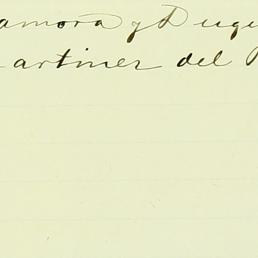 amora y Duqu
artinez del